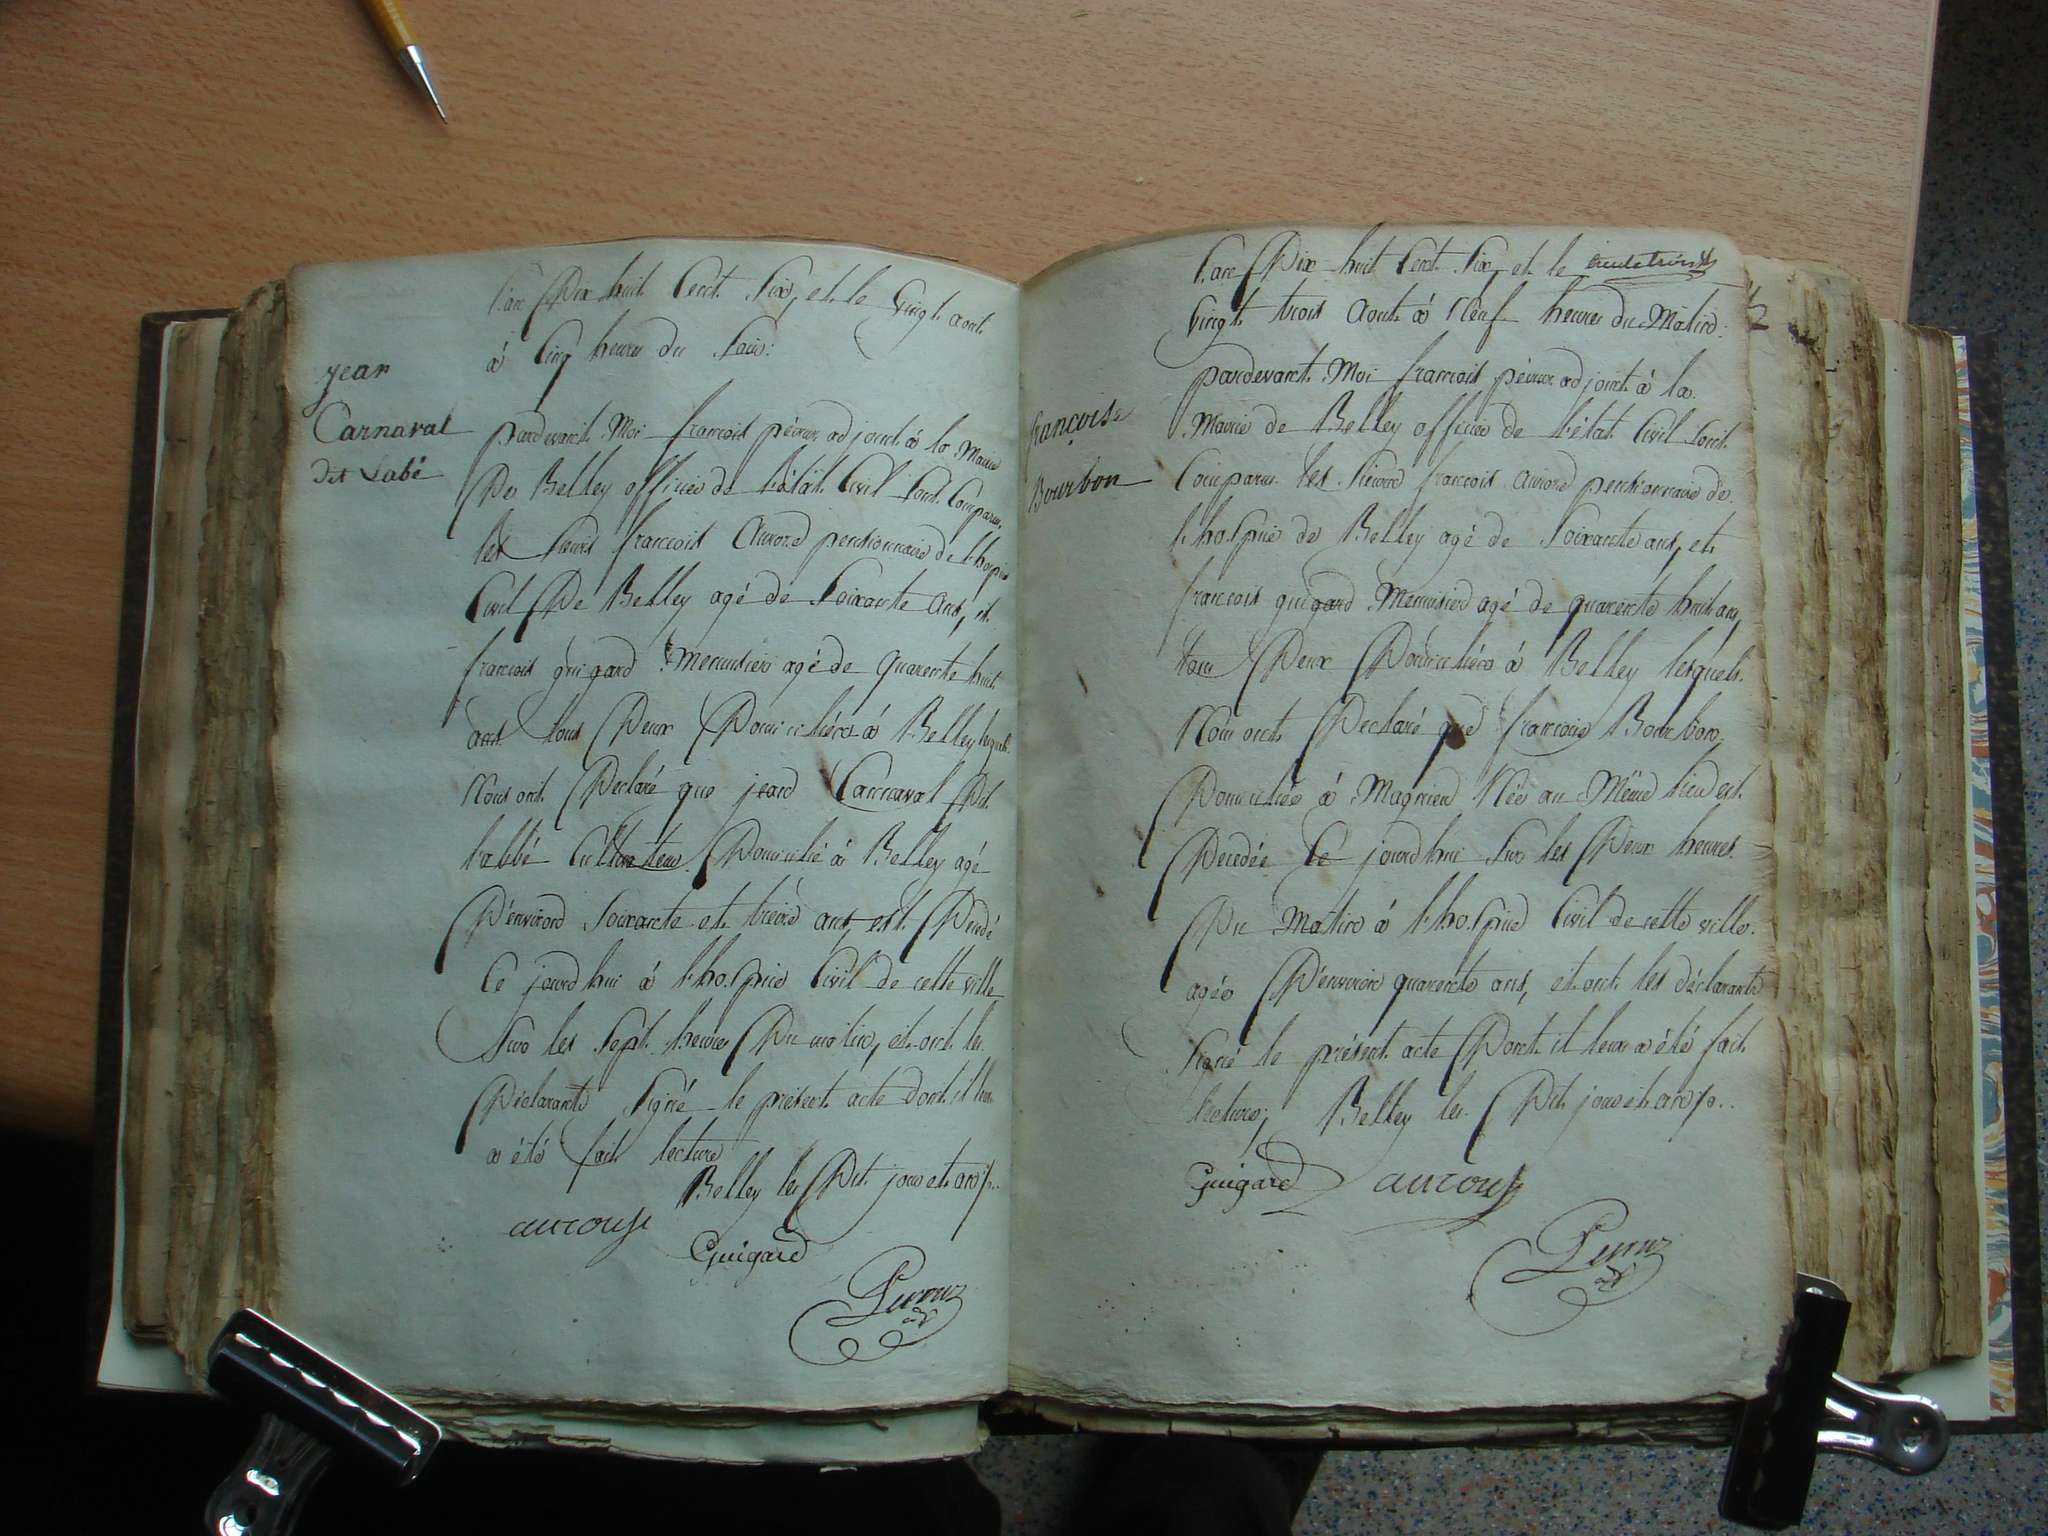 l'an Dix huit Cent Six, et le Vingt aout
à Cinq heures du Soir:
jean
Carnaval
dit Labé
pardevant Moi françois péroux adjoint à la Mairie
De Belley officier de l'état Civil Sont Comparus
les Sieurs françois Auroze pensionnaire de l'hospice
Civil De Belley agé de Soixante Ans, et
françois guigard Menuisier agé de quarente huit
ans tous Deux Domiciliés à Belley lesquels
Nous ont Declaré que jean Carnaval Dit
l'abbé Cultivateur Domicilié à Belley agé
D'environ Soixante et treize ans, est Décédé
Ce jourd'hui à l'hospice Civil de cette ville
Sur les Sept heures Du matin, et ont les
Déclarants Signé le présent acte dont il leur
a été fait lecture
Belley les Dit jour et an /.
Guigard
l'an Dix huit Cent Six, et le
Vingt trois Aout à Neuf heures du Matin
françoise
Bourbon
pardevant Moi françois péroux adjoint à la
Mairie de Belley officier de l'état Civil Sont
Comparu les Sieurs françois Auroze pensionnaire de
l'hospice de Belley agé de Soixante ans, et
françois guigard Menuisier agé de quarente huit ans,
tous Deux Domiciliés à Belley lesquels
Nous ont Declaré que françoise Bourbon,
Domiciliée à Magnieu Née au Même lieu est
Décédée Ce jourd'hui Sur les Deux heures
Du Matin à l'hospice Civil de cette ville
agée D'environ quarente ans, et ont les déclarants
Signé le présent acte Dont il leur a été fait
lecture; Belley les Dit jour et an /.
Guigard